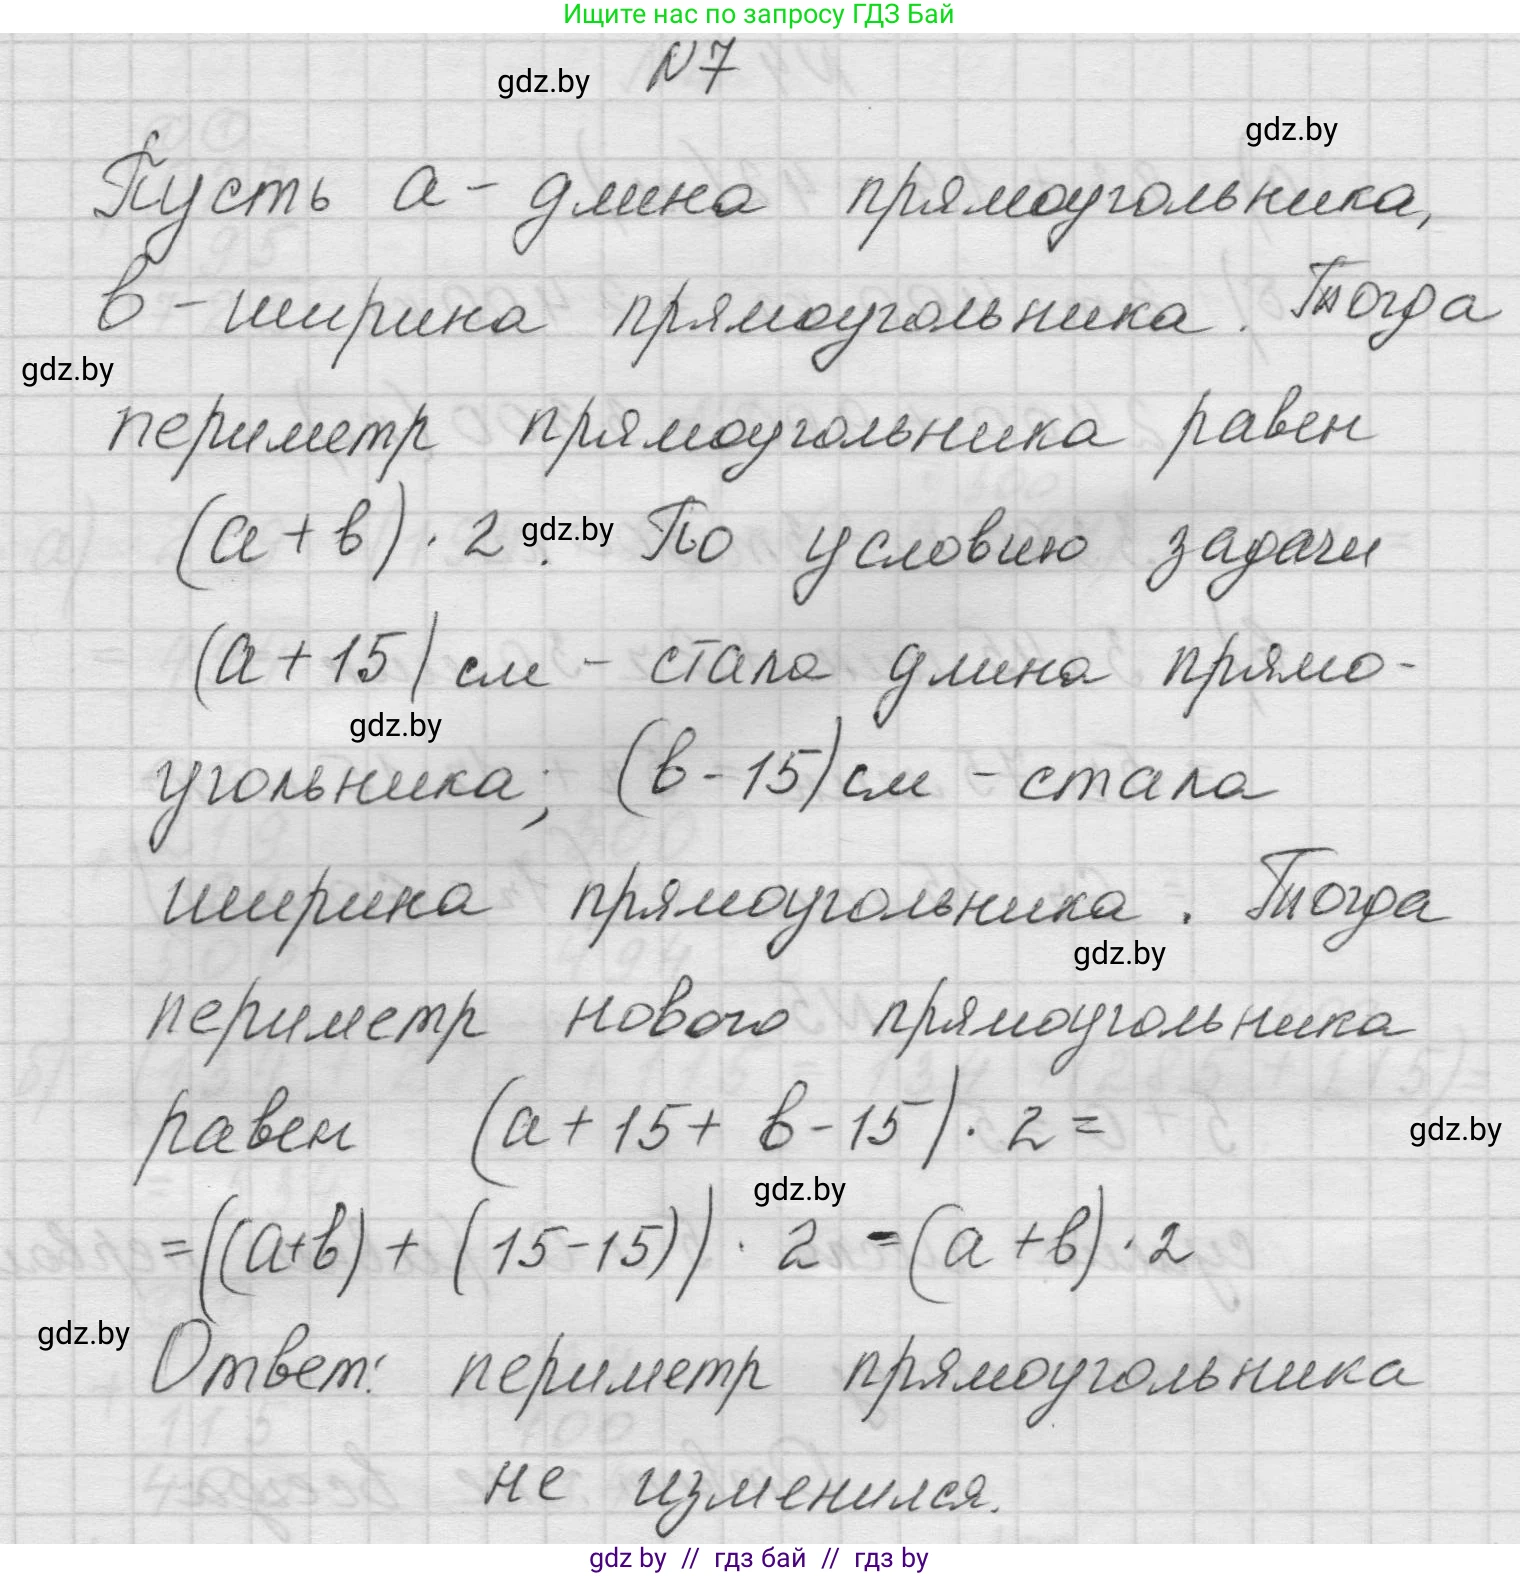 Ищите нас по запросу ГДЗ Бай
N7
gdz.by
gdz.by
Пусть а - длина прямоугольника,
в - ширина прямоугольника. Тогда
gdz.by
периметр прямоугольника равен
(а + в) · 2. По условию задачи
gdz.by
(а + 15) см - стала длина прямо-
gdz.by
угольника; (в - 15) см - стала
ширина прямоугольника. Тогда
gdz.by
периметр нового прямоугольника
равен (а + 15 + в - 15) · 2 =
gdz.by
gdz.by
= ((а+в) + (15-15)) · 2 = (а + в) · 2
gdz.by
Ответ: периметр прямоугольника
не изменился.
gdz by // гдз бай // гдз by